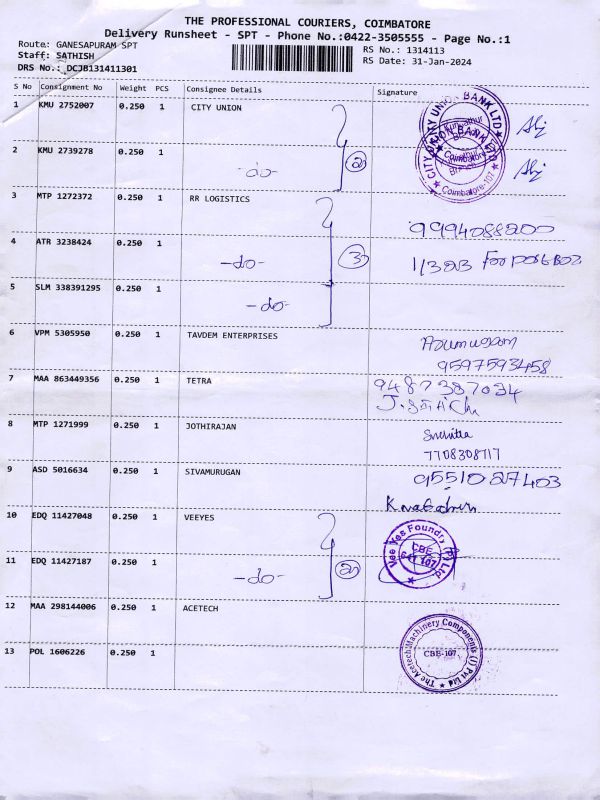 THE PROFESSIONAL COURIERS, COIMBATORE
Delivery Runsheet - SPT - Phone No.:0422-3505555 - Page No.:1
Route: GANESAPURAM SPT
Staff: SATHISH
DRS No.: DCJB131411301
RS No.: 1314113
RS Date: 31-Jan-2024
S No Consignment No Weight PCS Consignee Details Signature
1 KMU 2752007 0.250 1 CITY UNION
CITY UNION BANK LTD
2 KMU 2739278 0.250 1 -do- 2
Coimbatore-107
3 MTP 1272372 0.250 1 RR LOGISTICS
9994088200
4 ATR 3238424 0.250 1 -do- 3
5 SLM 338391295 0.250 1 -do-
6 VPM 5305950 0.250 1 TAVDEM ENTERPRISES
9597593458
7 MAA 863449356 0.250 1 TETRA
9487387034
8 MTP 1271999 0.250 1 JOTHIRAJAN
7708308717
9 ASD 5016634 0.250 1 SIVAMURUGAN
9551027403
10 EDQ 11427048 0.250 1 VEEYES
Vee Yes Foundry (P) Ltd
CBE
11 EDQ 11427187 0.250 1 -do- 2
12 MAA 298144006 0.250 1 ACETECH
The Acetech Machinery Components (I) Pvt Ltd
CBE-107.
13 POL 1606226 0.250 1